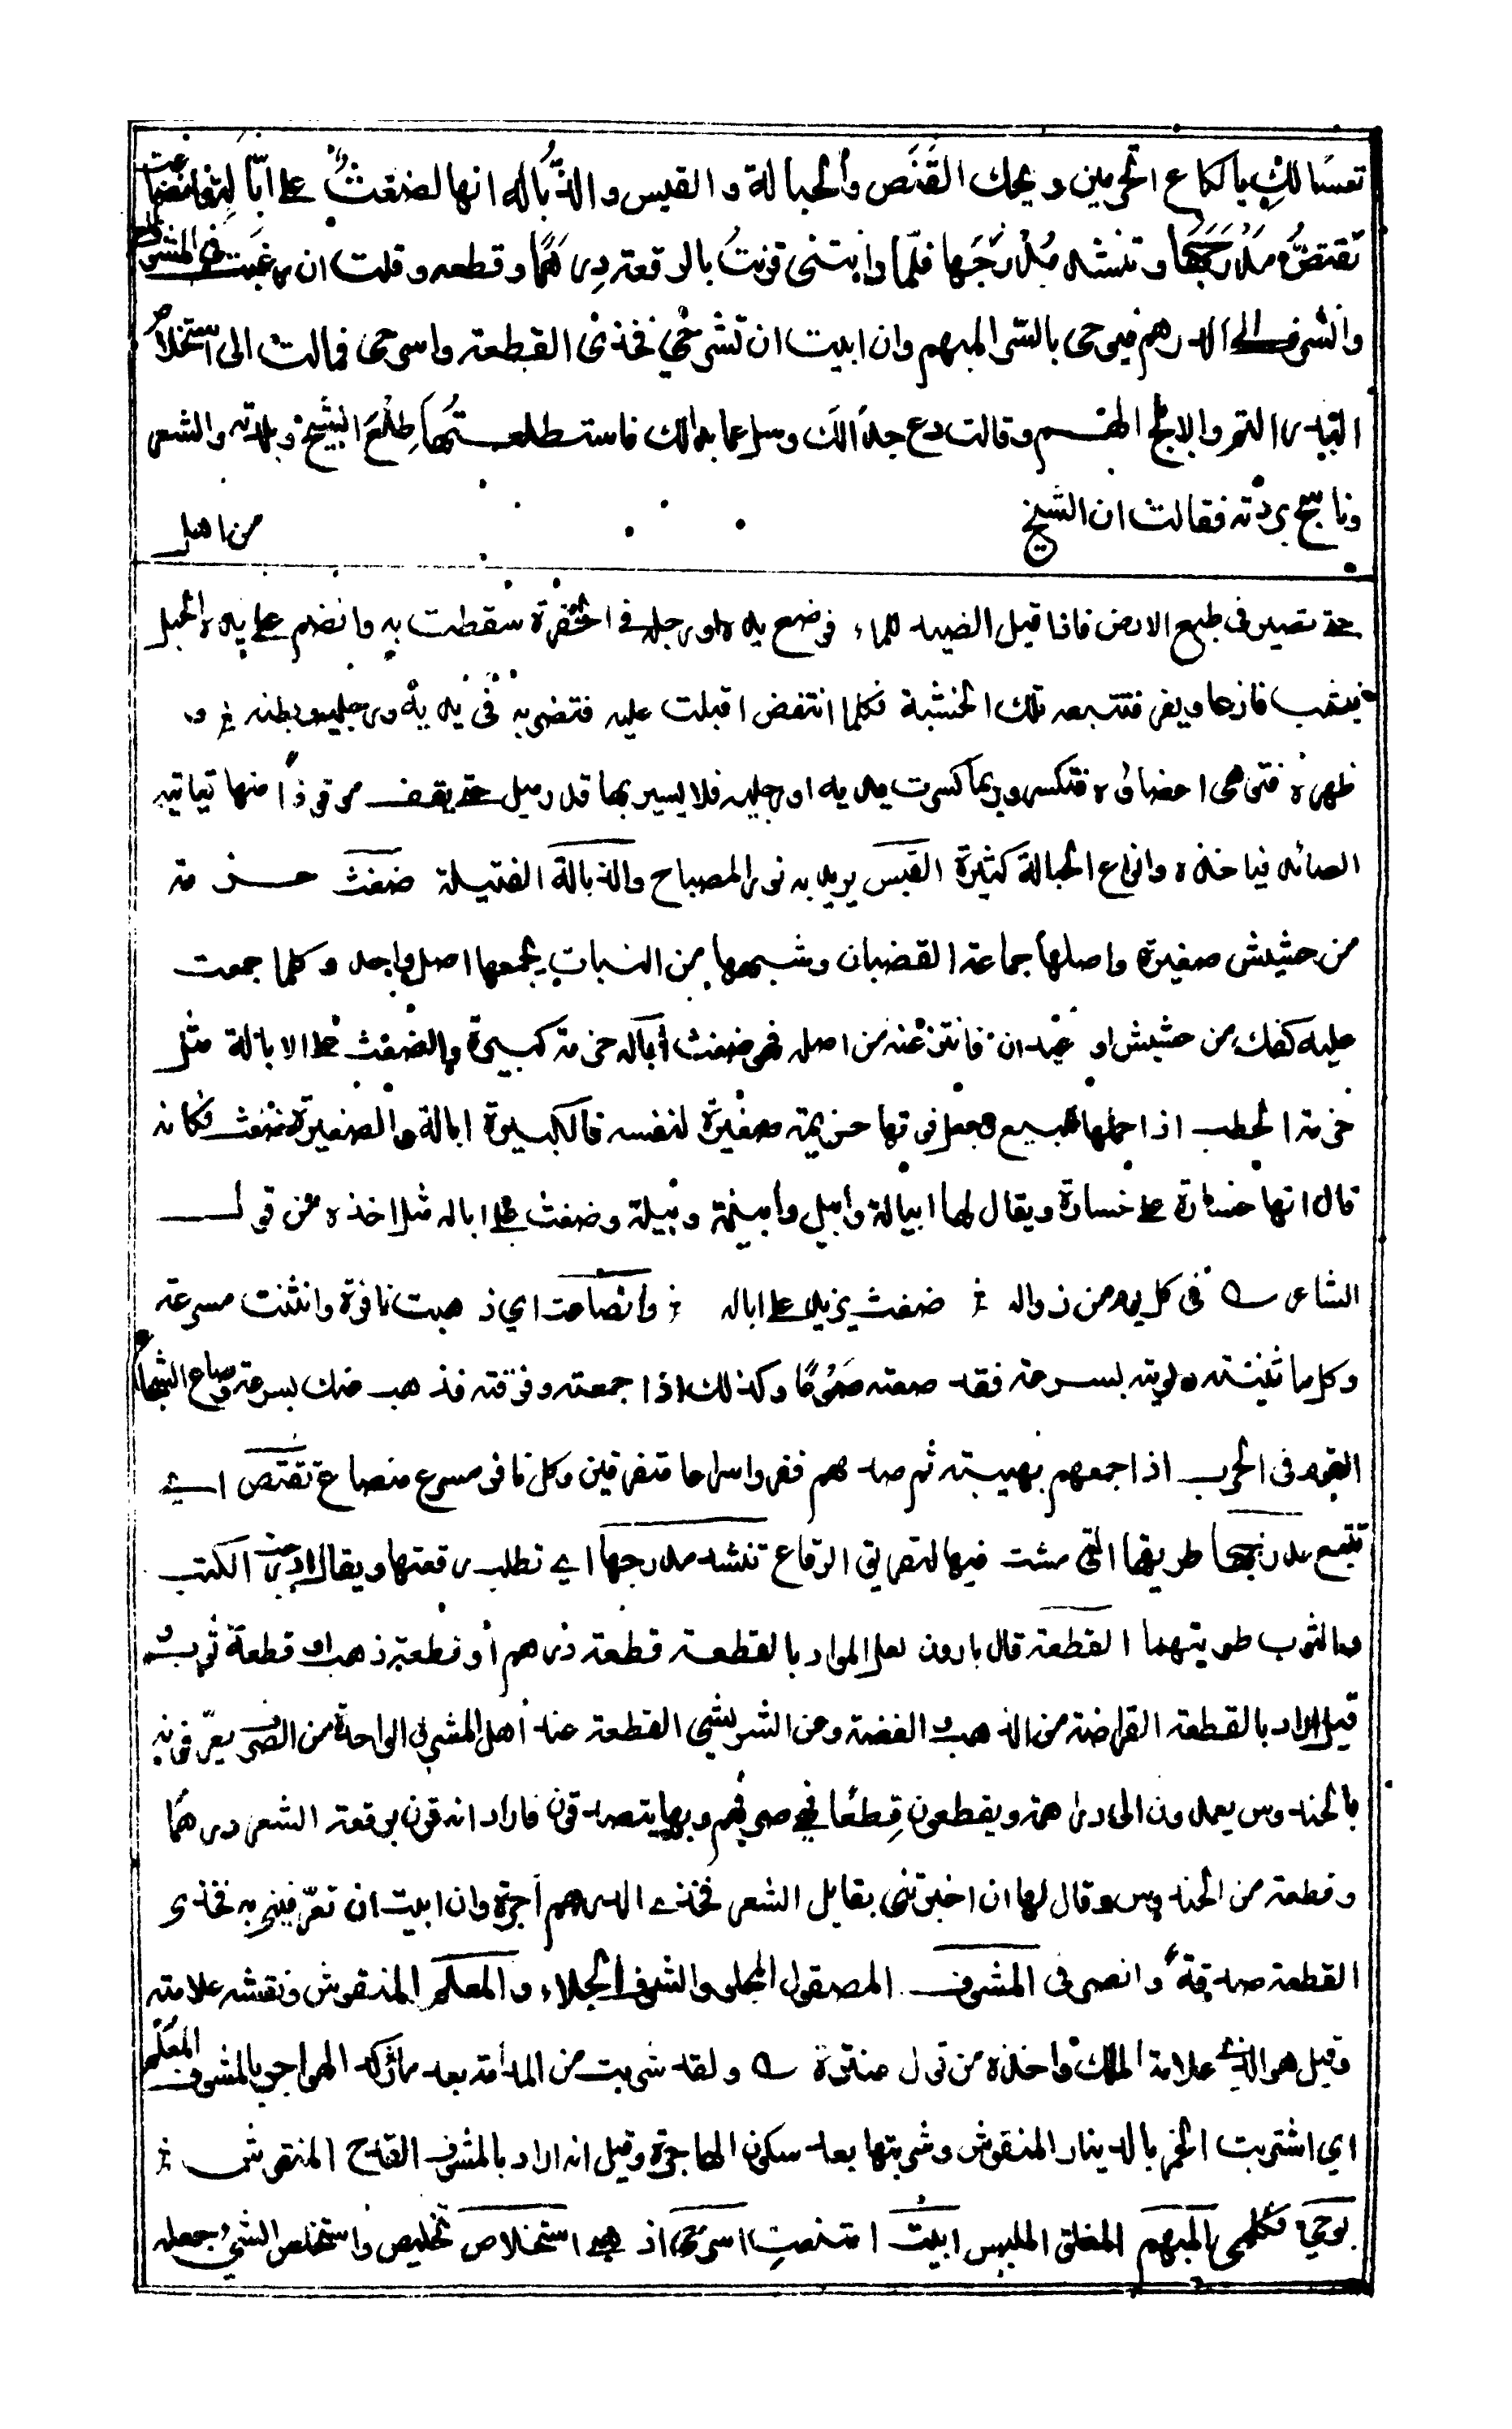 تعسًا لكِ يا لكاع اتحرمين ويحك القَنَص والحبالة والقبس والذُّبَاله انها لضغثٌ على ابّالة فانصاعت
تَقتصُّ مَدْرَجَها وتنشد مُدْرَجَها فلمّا دانتنى قرنتُ بالرقعة دِرهمًا وقطعه وقلت ان رغبت فى المشوف المعلم
واشرت الى الدرهم فبوحى بالسّر المبهم وان ابيت ان تشرحى فخذى القطعة واسرحى فمالت الى استخلاص
البدر التم والابلج الهم وقالت دع جدالك وسل عما بدالك فاستطلعتها طِلْعَ الشيخ وبلدته والشعر
وناسج بردته فقالت ان الشيخ من اهل
حتى تصير فى طبع الارض فاذا قبل الصيد للماء فوضع يده او رجله فى الحفرة سقطت به وانضم على يده الحبل
فيشب فازعا ويفر فتتبعه تلك الخشبة فكلما انتفض اقبلت عليه فتضربه فى يديه ورجليه وبطنه و
ظهره فتوهى اعضاؤه فتكسر وربما كسرت يديه او رجليه فلا يسير بها قدر ميل حتى يقف موقوذًا منها فياتيه
الصائد فياخذه وانواع الحبالة كثيرة القبس يريد به نور المصباح والذبالة الفتيلة ضغث حزمة
من حشيش صغيرة واصلها جماعة القضبان وشبهها من النبات يجمعها اصل واحد وكلما جمعت
عليه كفك من حشيش او عيدان فانتزعته من اصله فهو ضغث ابالة حزمة كبيرة والضغث على الابالة مثل
حزمة الحطب اذا حملها للبيع وجعل فوقها حزيمة صغيرة لنفسه فالكبيرة ابالة والصغيرة ضغث فكانه
قال انها خسارة على خسارة ويقال لها ايبالة وابيل وابيلة وبيلة وضغث على اباله مثل اخذه من قول
الشاعر فى كل يوم من ذواله ضغث يزيد على اباله وانصاعت اي ذهبت نافرة وانثنت مسرعة
وكل ما ثنيته ولويته بسرعة فقد صعته صَوْعًا وكذلك اذا جمعته وفرقته فذهب عنك بسرعة وصاع الشجاع
القوم فى الحرب اذا جمعهم بهيبته ثم صدهم ففروا سراعا متفرقين وكل نافر مسرع منصاع تقتص اي
تتبع مدرجها طريقها التى مشت فيها لتفريق الرقاع تنشد مدرجها اي تطلب رقعتها ويقال ادرجت الكتب
والثوب طويتهما القطعة قال بارون لعل المراد بالقطعة قطعة درهم او قطعة ذهب او قطعة ثوب و
قيل اراد بالقطعة القراضة من الذهب والفضة وعن الشريشي القطعة عند اهل المشرق الواحدة من الصرف يعرفونه
بالحندوس يعمدون الى دراهمهم ويقطعون قِطعًا فى صرفهم وبها يتصدقون فاراد انه قرن برقعة الشعر درهمًا
وقطعة من الحندوس وقال لها ان اخبرتنى بقايل الشعر فخذى الدرهم أجرة وان ابيت ان تعرّفينى به فخذى
القطعة صدقةً وانصرفى المشوف المصقول المجلو والشوف الجلاء والمعلم المنقوش ونقشه علامته
وقيل هو الذى علامة الملك واخذه من قول عنترة ولقد شربت من المدامة بعد ما ركد الهواجر بالمشوف المعلم
اي اشتريت الخمر بالدينار المنقوش وشربتها بعد سكون الهاجرة وقيل انه اراد بالمشوف القدح المنقوش
بوحى تكلمى المبهم المغلق الملبس ابيت امتنعتِ اسرحى اذهبى استخلاص تخليص واستخلص الشئ جعله